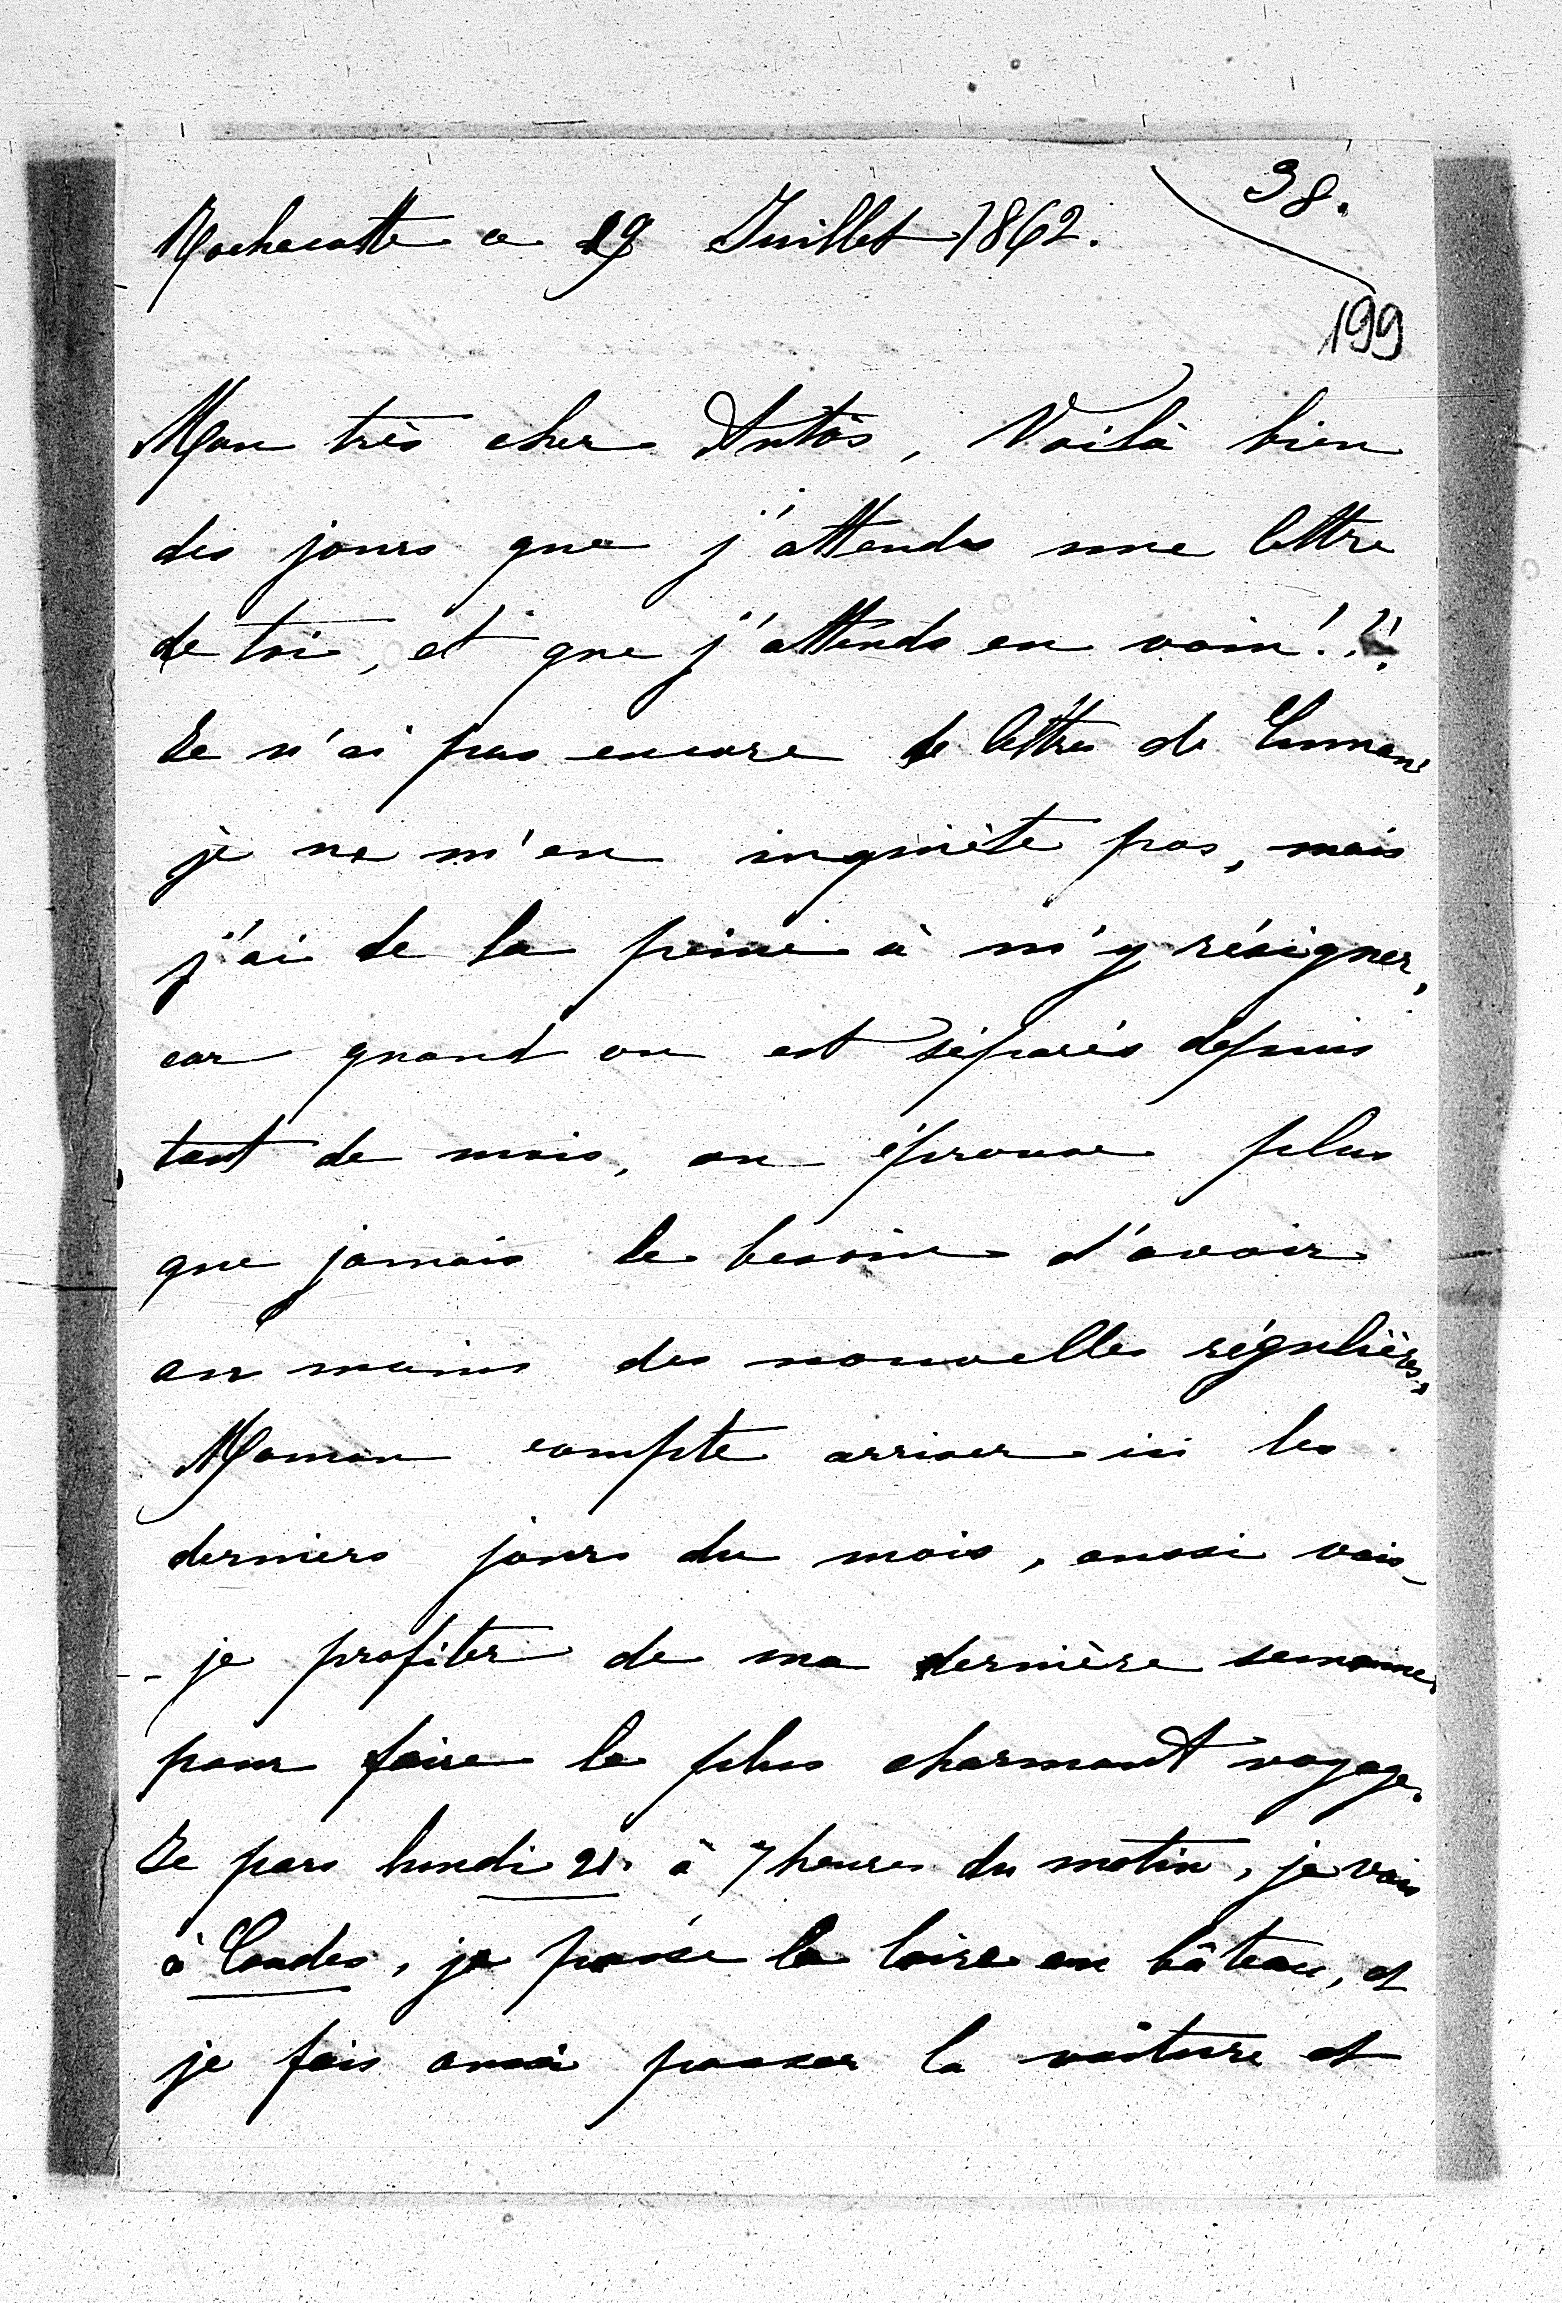 38.
Rochecotte ce 19 Juillet 1862.
199
Mon très cher Antós, Voilà bien
des jours que j'attends une lettre
de toi, et que j'attends en vain!.?!
Je n'ai pas encore de lettres de
je ne m'en inquiète pas, mais
j'ai de la peine à m'y résigner,
car quand on est séparés depuis
tant de mois, on éprouve plus
que jamais le besoin d'avoir
au moins des nouvelles régulières.
Maman compte arriver ici les
derniers jours du mois, aussi vais-
-je profiter de ma dernière semaine,
pour faire le plus charmant voyage.
Je pars lundi 21. à 7 heures du matin, je vais
à Candes, je passe la Loire en bâteau, et
je fais aussi passer la voiture et